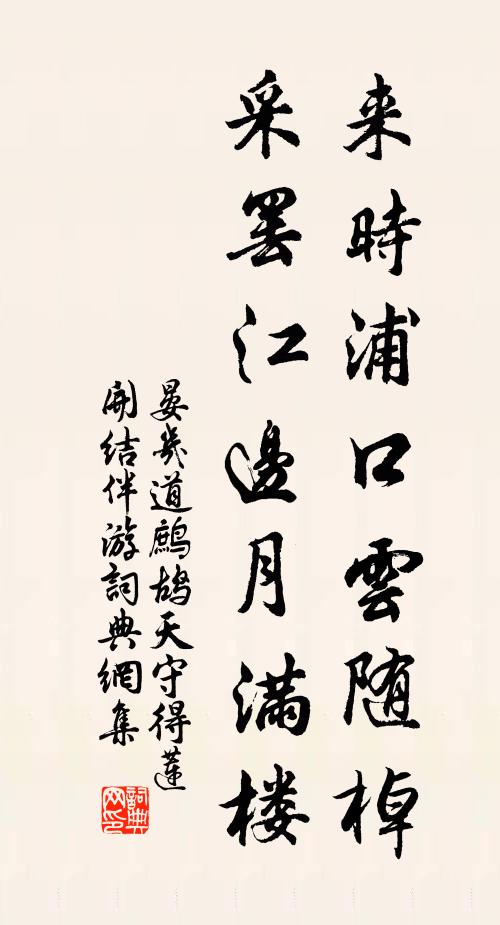 来時浦口雲随棹
采罢江邊月满楼
晏幾道鷓鸪天守得蓮
開结伴游詞典網集
詞典
网印